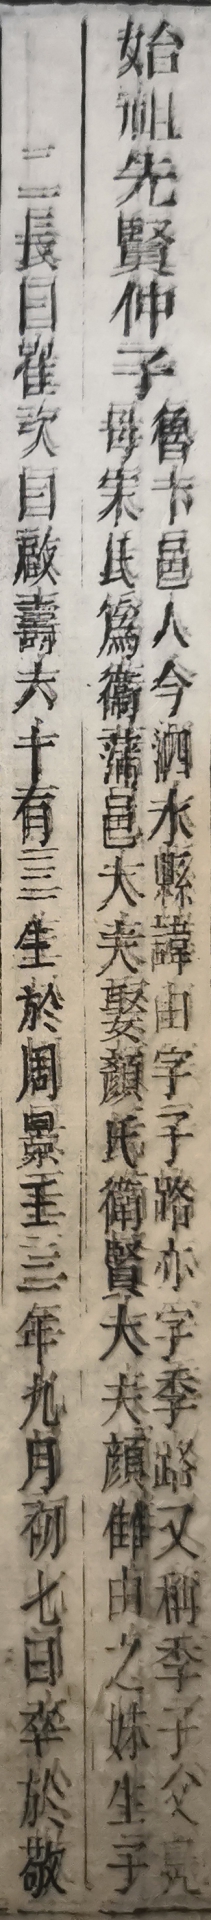 始祖先賢仲子
魯卞邑人今泗水縣諱由字子路亦字季路又稱季子父鳧
母宋氏爲衞蒲邑大夫娶顏氏衛賢大夫顏讎由之妹生子
二長曰崔次曰啟壽六十有三生於周景王三年九月初七日卒於敬